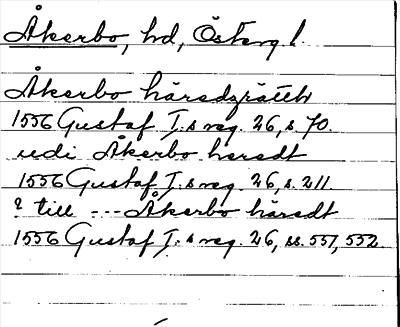 Åkerbo, hd, Österg l.
Åkerbo häredzrätth
1556 Gustaf I:s reg. 26, s. 70.
udi Åkerbo heredt
1556 Gustaf I:s reg. 26, s. 211
? till --- Åkerbo häredt
1556 Gustaf I:s reg. 26, ss. 551, 552